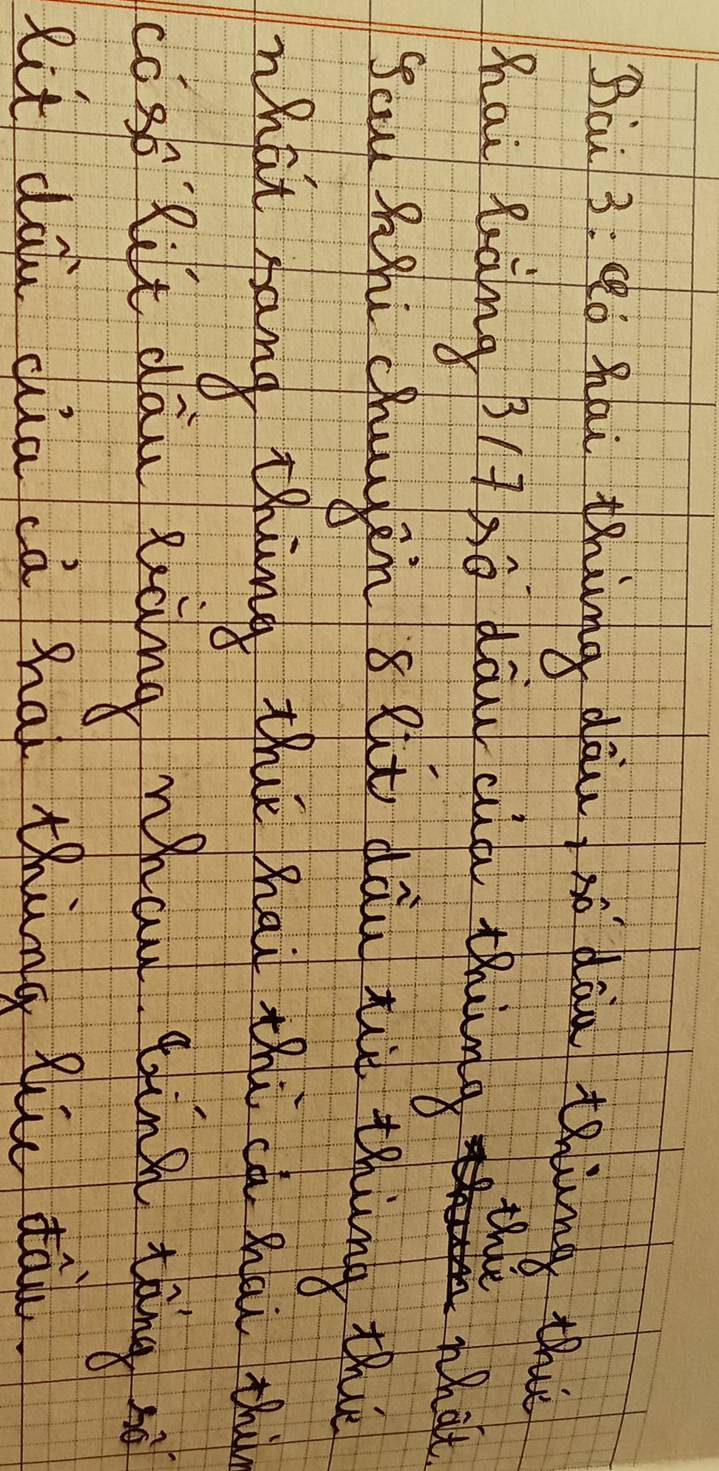 Bài 3: Có hai thùng dầu, số dầu thùng thứ
hai bằng 3/7 số dầu của thùng thứ nhất.
Sau khi chuyển 8 lít dầu từ thùng thứ
nhất sang thùng thứ hai thì cả hai thùn
có số lít dầu bằng nhau. Tính tổng số
lít dầu của cả hai thùng lúc đầu.